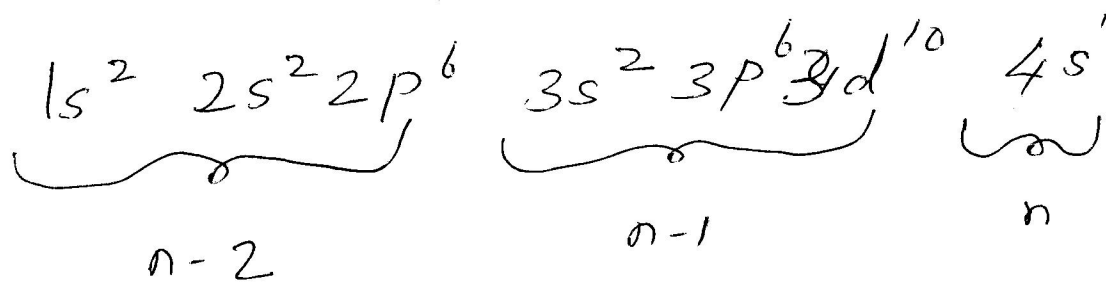 1s² 2s² 2p⁶ 3s² 3p⁶ 3d¹⁰ 4s¹
n-2 n-1 n